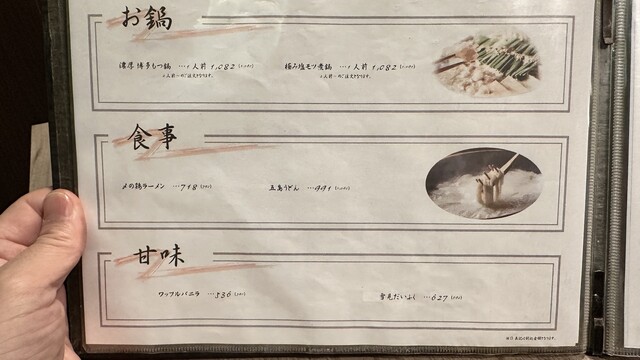 お鍋
濃厚博多もつ鍋 …1人前 1,082
極み塩モツ煮鍋 …1人前 1,082
2人前〜のご注文となります。
2人前〜のご注文となります。
食事
〆の鍋ラーメン …748
五島うどん …491
甘味
ワッフルバニラ …536
雪見だいふく …627